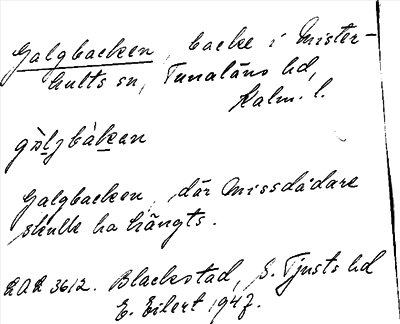 Galgbacken, backe i Mister-
hults sn, Tunaläns hd,
Kalm. l.
gòljbàken
Galgbacken, där missdådare
skulle ha hängts.
RAÄ 3612. Blackstad, S. Tjusts hd
E. Eilert 1947.